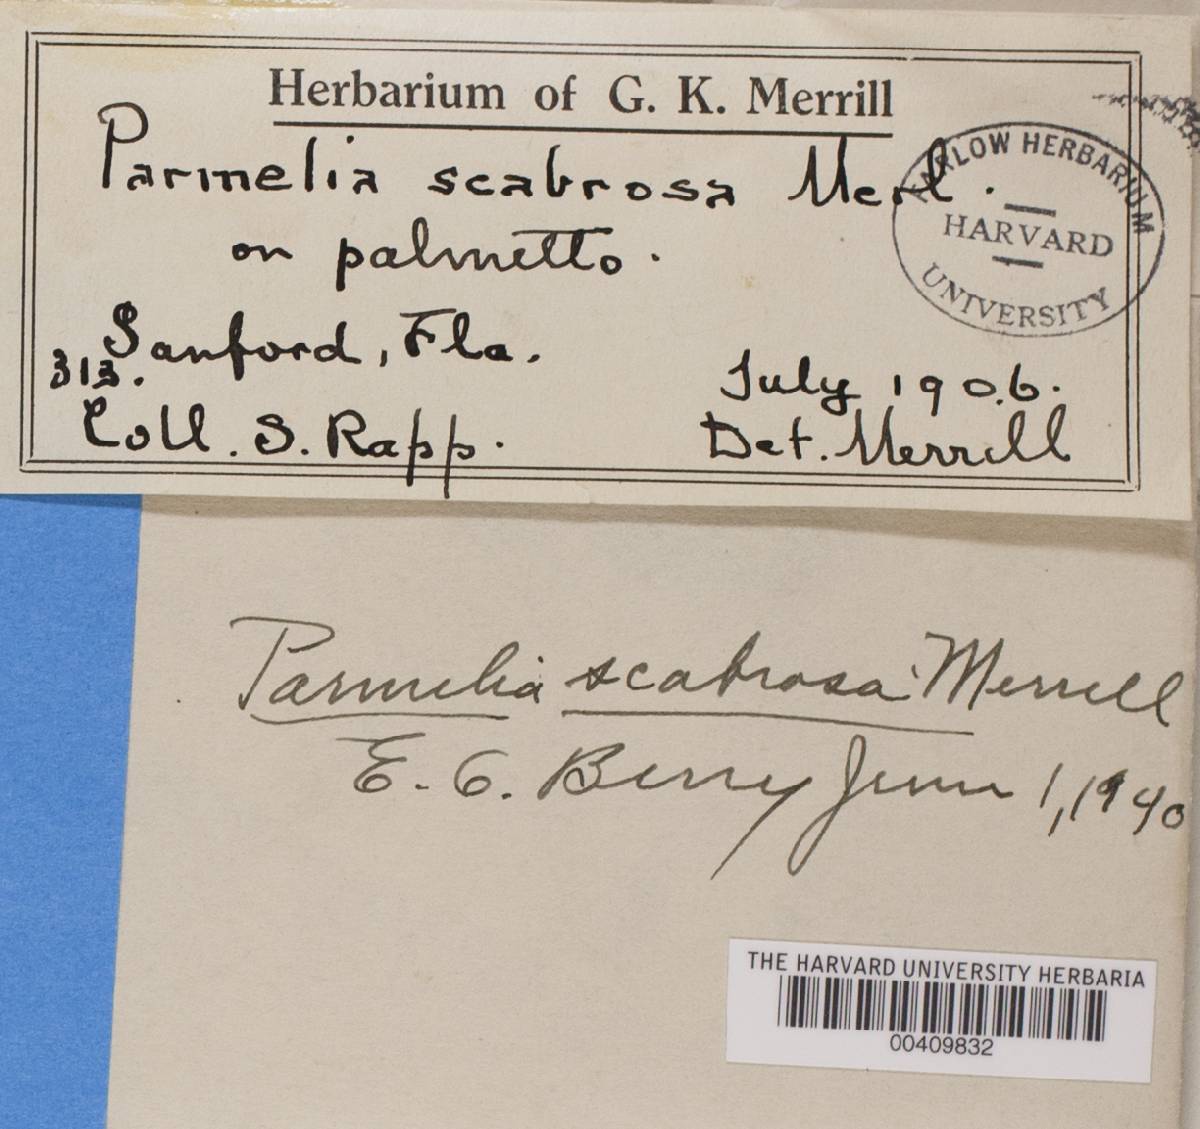 Herbarium of G. K. Merrill
Parmelia scabrosa Merl.
on palmetto.
Sanford, Fla.
313.
July 1906.
Coll. S. Rapp.
Det. Merrill
FARLOW HERBARIUM
HARVARD
UNIVERSITY
Parmelia scabrosa Merrill
E. C. Berry June 1, 1940
THE HARVARD UNIVERSITY HERBARIA
00409832